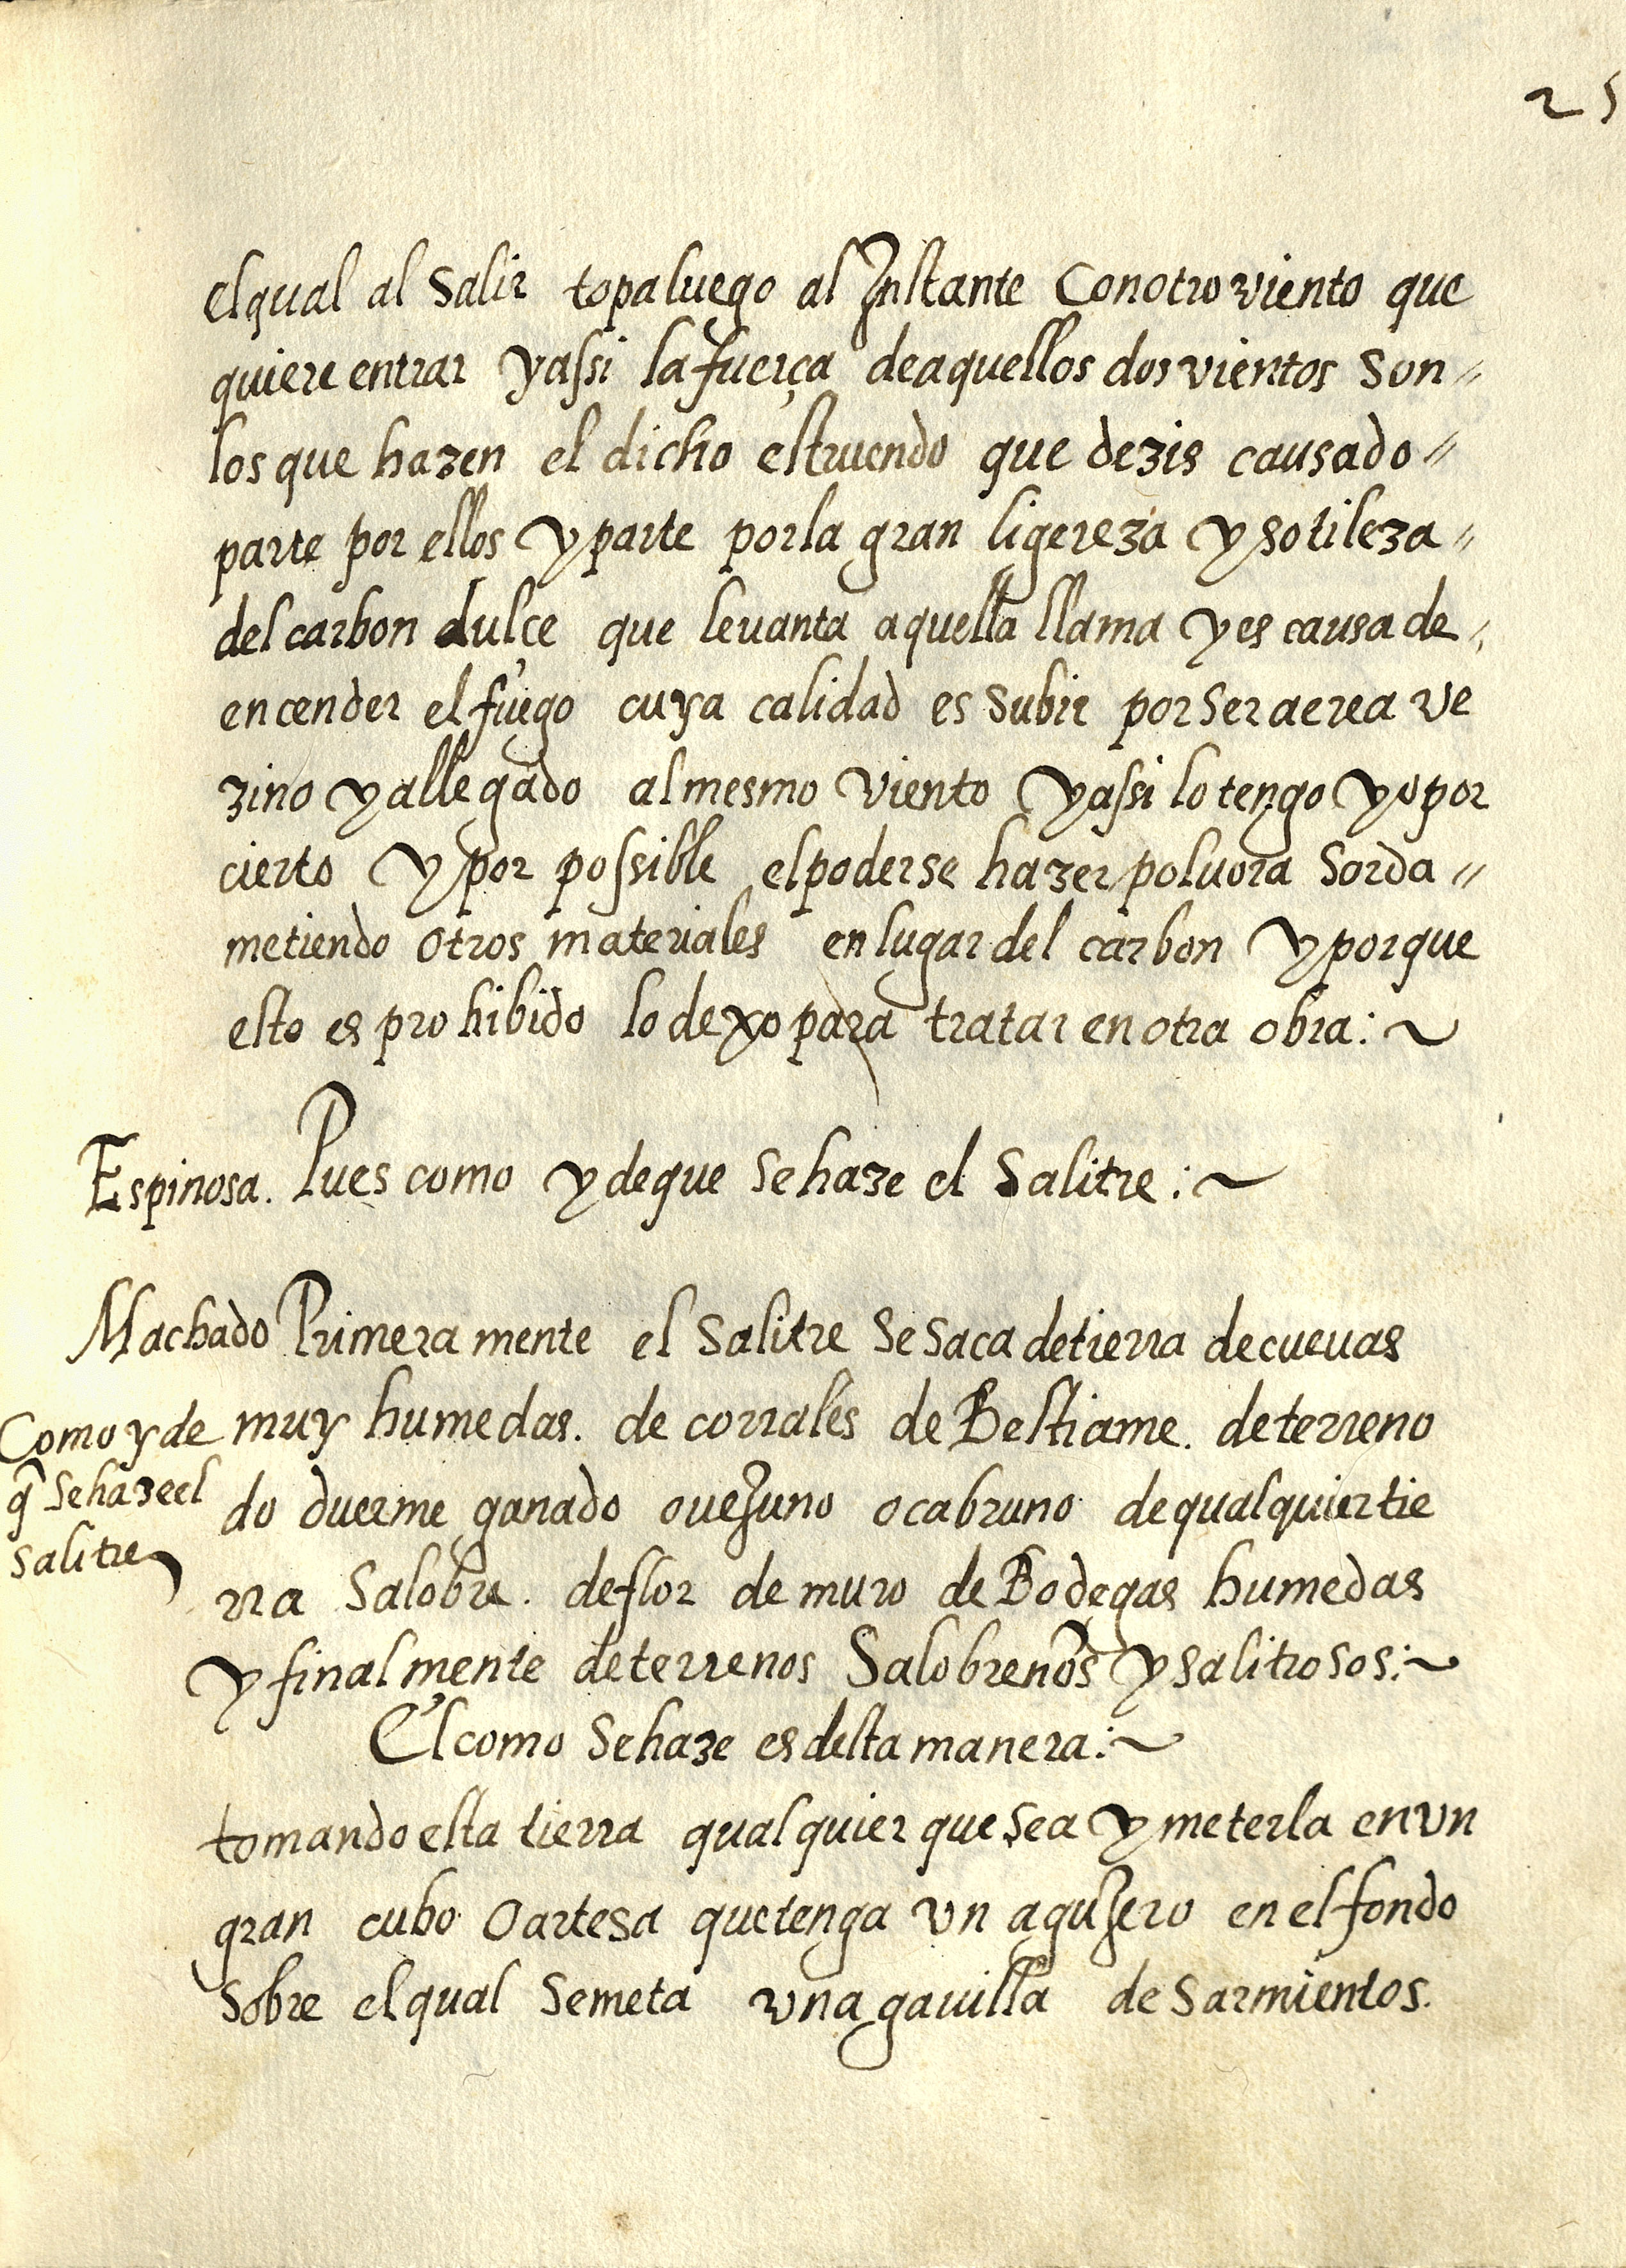 25
el qual al salir topa luego al Instante con otro viento que
quiere entrar y assi la fuerça de aquellos dos vientos son //
los que hazen el dicho estruendo que dezis causado //
parte por ellos y parte por la gran ligereza y sotileza //
del carbon dulce que leuanta aquella llama y es causa de //
encender el fuego cuya calidad es subir por ser aerea ve
zino y allegado al mesmo viento y assi lo tengo yo por
cierto y por possible el poderse hazer poluora sorda //
metiendo otros materiales en lugar del carbon y porque
esto es prohibido lo dexo para tratar en otra obra: ~
Espinosa. Pues como y de que se haze el salitre: ~
Machado Primeramente el salitre se saca de tierra de cueuas
muy humedas. de corrales de Bestiame. de terreno
Como y de
q̃ se haze el
salitre
do duerme ganado ouejuno o cabruno de qualquier tie
rra salobre. de flor de muro de Bodegas humedas
y finalmente de terrenos salobreños y salitrosos: ~
El como se haze es desta manera: ~
tomando esta tierra qualquier que sea y meterla en vn
gran cubo o artesa que tenga vn agujero en el fondo
sobre el qual se meta vna gauilla de sarmientos.